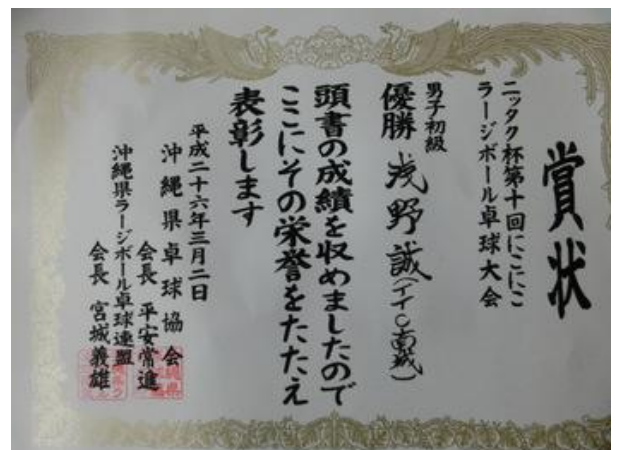 賞状
ニッタク杯第十回にこにこ
ラージボール卓球大会
男子初級
優勝 浅野 誠(TTC南城)
頭書の成績を収めましたので
ここにその栄誉をたたえ
表彰します
平成二十六年三月二日
沖縄県卓球協会
会長 平安常進
沖縄県ラージボール卓球連盟
会長 宮城義雄